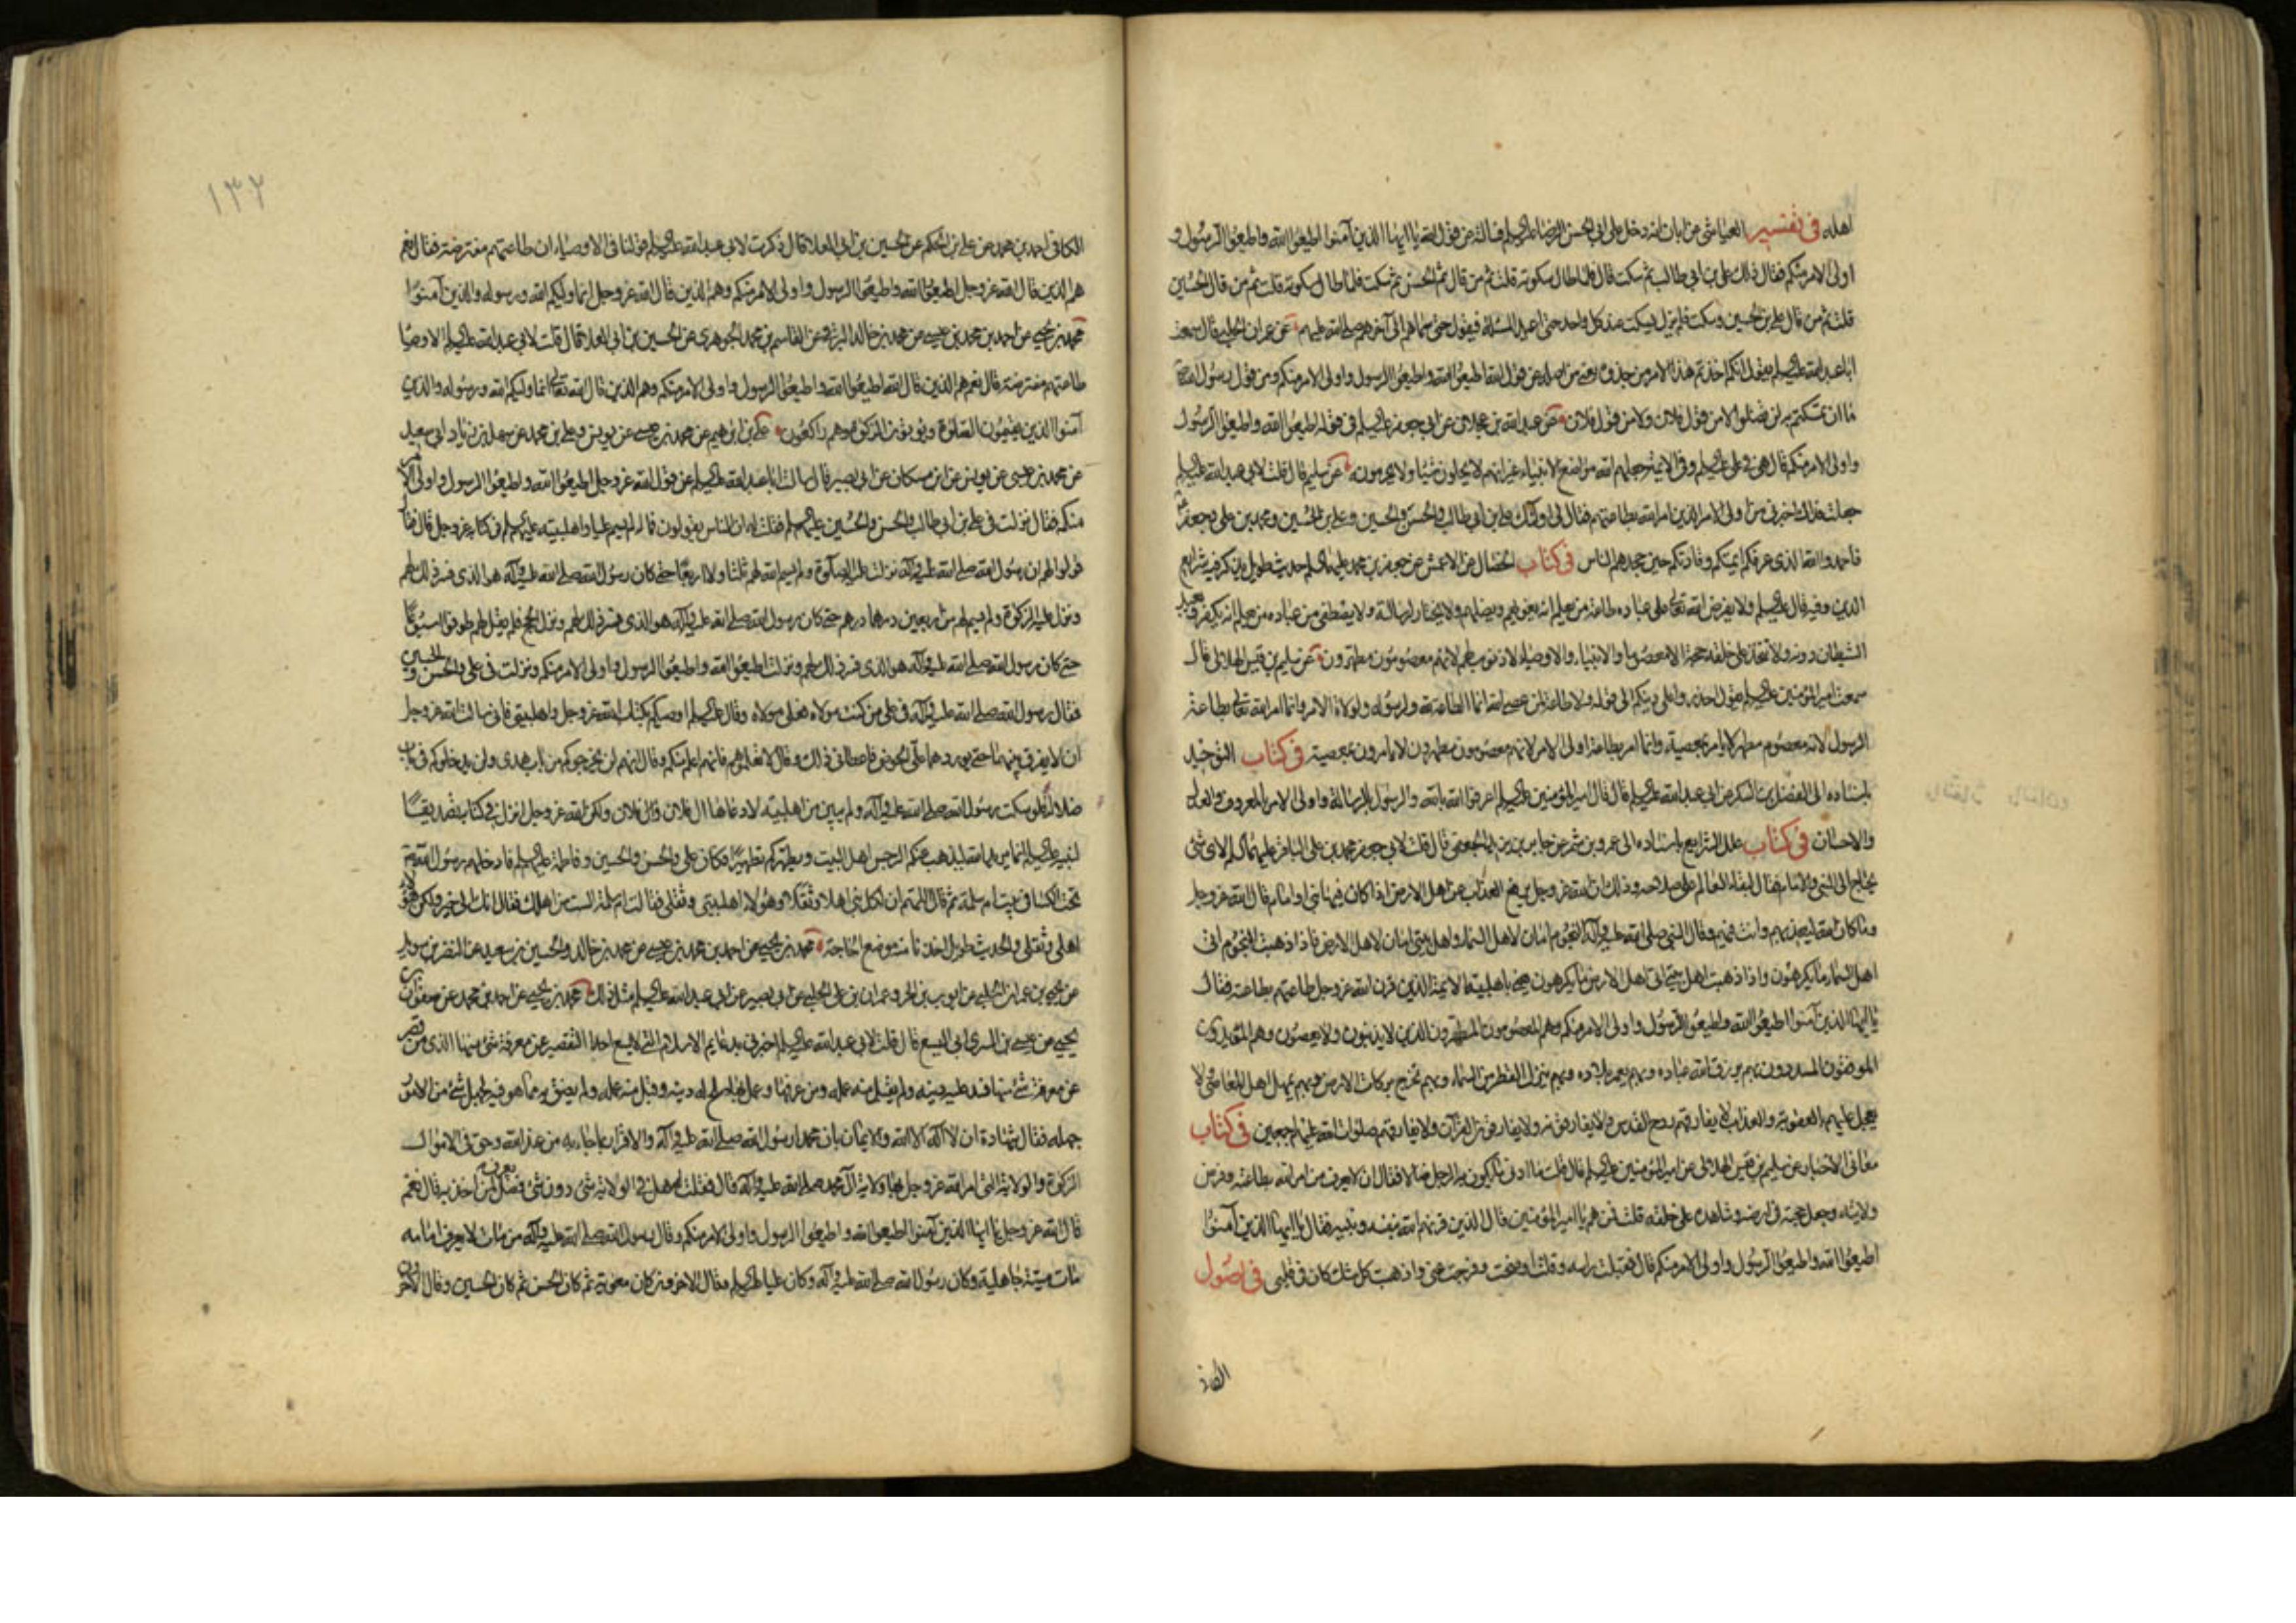 اهله في تفسير العياشي عن ابان انه دخل على ابي الحسن الرضا عليه السلم فسالته عن قول الله يا ايها الذين آمنوا اطيعوا الله واطيعوا الرسول و
اولى الامر منكم فقال ذلك علي بن ابي طالب ثم سكت قال فلما طال سكوته قلت ثم من قال ثم الحسن ثم سكت فلما طال سكوته قلت ثم من قال الحسين
قلت ثم من قال علي بن الحسين وسكت فلم يزل يسكت عند كل واحد حتى اعيد المسئلة فيقول حتى سماهم الى آخرهم صلى الله عليهم عن عمران الحلبي قال سمعت
ابا عبد الله عليه السلم يقول انكم اخذتم هذا الامر من جذوه يعني من اصله عن قول الله اطيعوا الله واطيعوا الرسول واولى الامر منكم ومن قول رسول الله
ما ان تمسكتم به لن تضلوا لا من قول فلان ولا من قول فلان عن عبد الله بن عجلان عن ابي جعفر عليه السلم في قوله اطيعوا الله واطيعوا الرسول
واولى الامر منكم قال هي في علي عليه السلم وفي الائمة جعلهم الله مواضع الانبياء غير انهم لا يحلون شيئا ولا يحرمونه عن حكيم قال قلت لابي عبد الله عليه السلم
جعلت فداك اخبرني من اولى الامر الذين امر الله بطاعتهم فقال لي اولئك علي بن ابي طالب والحسن والحسين وعلي بن الحسين ومحمد بن علي وجعفر
فاحمدوا الله الذي عرفكم ائمتكم وقادتكم حين جحدهم الناس في كتاب الخصال عن الاعمش عن جعفر بن محمد عليهما السلم حديث طويل يذكر فيه شرايع
الدين وفيه قال عليه السلم ولا يفرض الله تعالى على عباده طاعة من يعلم انه يغويهم ويضلهم ولا يختار لرسالته ولا يصطفي من عباده من يعلم انه يكفر به ويعبد
الشيطان دونه ولا يتخذ على خلقه حجة الا معصوما والانبياء والاوصياء لا ذنوب لهم لانهم معصومون مطهرون عن سليم بن قيس الهلالي قال
سمعت امير المؤمنين عليه السلم يقول احذروا على دينكم الى قوله ولا طاعة لمن عصى الله انما الطاعة لله ولرسوله ولولاة الامر وانما امر الله تعالى بطاعة
الرسول لانه معصوم مطهر لا يامر بمعصية وانما امر بطاعة اولى الامر لانهم معصومون مطهرون لا يامرون بمعصيته في كتاب التوحيد
باسناده الى الفضل بن السكن عن ابي عبد الله عليه السلم قال قال امير المؤمنين عليه السلم اعرفوا الله بالله والرسول بالرسالة واولى الامر بالمعروف والعدل
والاحسان في كتاب علل الشرايع باسناده الى عمرو بن شمر عن جابر بن يزيد الجعفي قال قلت لابي جعفر محمد بن علي الباقر عليهما السلم لاى شئ
يحتاج الى النبي والامام فقال لبقاء العالم على صلاحه وذلك ان الله عز وجل يرفع العذاب عن اهل الارض اذا كان فيها نبي او امام قال الله عز وجل
وما كان الله ليعذبهم وانت فيهم وقال النبي صلى الله عليه وآله النجوم امان لاهل السماء واهل بيتي امان لاهل الارض فاذا ذهبت النجوم اتى
اهل السماء ما يكرهون واذا ذهبت اهل بيتي اتى اهل الارض ما يكرهون يعني باهل بيته الائمة الذين قرن الله عز وجل طاعتهم بطاعته فقال
يا ايها الذين آمنوا اطيعوا الله واطيعوا الرسول واولى الامر منكم وهم المعصومون المطهرون الذين لا يذنبون ولا يعصون وهم المؤيدون
الموفقون المسددون بهم يرزق الله عباده وبهم يعمر بلاده وبهم ينزل القطر من السماء وبهم تخرج بركات الارض وبهم يمهل اهل المعاصي ولا
يعجل عليهم بالعقوبة والعذاب لا يفارقهم روح القدس ولا يفارقونه ولا يفارقون القرآن ولا يفارقهم صلوات الله عليهم اجمعين في كتاب
معاني الاخبار عن سليم بن قيس الهلالي عن امير المؤمنين عليه السلم قال قلت ما ادنى ما يكون به الرجل ضالا فقال ان لا يعرف من امر الله بطاعته وفرض
ولايته وجعل حجته في ارضه وشاهده على خلقه قلت فمن هم يا امير المؤمنين قال الذين قرنهم الله بنفسه ونبيه فقال يا ايها الذين آمنوا
اطيعوا الله واطيعوا الرسول واولى الامر منكم قال فقبلت راسه وقلت اوضحت لي وفرجت عني واذهبت كل شك كان في قلبي في اصول
١٣٢
الكافي احمد بن محمد عن علي بن الحكم عن الحسين بن ابي العلا قال ذكرت لابي عبد الله عليه السلم قولنا في الاوصياء ان طاعتهم مفترضة فقال نعم
هم الذين قال الله عز وجل اطيعوا الله واطيعوا الرسول واولى الامر منكم وهم الذين قال الله عز وجل انما وليكم الله ورسوله والذين آمنوا
محمد بن يحيى عن احمد بن محمد بن عيسى عن محمد بن خالد البرقي عن القاسم بن محمد الجوهري عن الحسين بن ابي العلا قال قلت لابي عبد الله عليه السلم الاوصيا
طاعتهم مفترضة قال نعم هم الذين قال الله اطيعوا الله واطيعوا الرسول واولى الامر منكم وهم الذين قال الله تعالى انما وليكم الله ورسوله والذين
آمنوا الذين يقيمون الصلوة ويؤتون الزكوة وهم راكعون علي بن ابرهيم عن محمد بن عيسى عن يونس وعلي بن محمد عن سهل بن زياد ابي سعيد
عن محمد بن عيسى عن يونس عن ابن مسكان عن ابي بصير قال سالت ابا عبد الله عليه السلم عن قول الله عز وجل اطيعوا الله واطيعوا الرسول واولى الامر
منكم فقال نزلت في علي بن ابي طالب والحسن والحسين عليهم السلم فقلت له ان الناس يقولون فما له لم يسم عليا واهل بيته عليهم السلم في كتابه عز وجل قال فقال
قولوا لهم ان رسول الله صلى الله عليه وآله نزلت عليه الصلوة ولم يسم الله لهم ثلثا ولا اربعا حتى كان رسول الله صلى الله عليه وآله هو الذي فسر ذلك لهم
ونزل عليه الزكوة ولم يسم لهم من كل اربعين درهما درهم حتى كان رسول الله صلى الله عليه وآله هو الذي فسر ذلك لهم ونزل الحج فلم يقل لهم طوفوا اسبوعا
حتى كان رسول الله صلى الله عليه وآله هو الذي فسر ذلك لهم ونزلت اطيعوا الله واطيعوا الرسول واولى الامر منكم ونزلت في علي والحسن والحسين
فقال رسول الله صلى الله عليه وآله في علي من كنت مولاه فعلي مولاه وقال عليه السلم اوصيكم بكتاب الله عز وجل واهل بيتي فاني سالت الله عز وجل
ان لا يفرق بينهما حتى يوردهما على الحوض فاعطاني ذلك وقال لا تعلموهم فانهم اعلم منكم وقال انهم لن يخرجوكم من باب هدى ولن يدخلوكم في باب
ضلالة فلو سكت رسول الله صلى الله عليه وآله ولم يبين من اهل بيته لادعاها آل فلان وآل فلان ولكن الله عز وجل انزل في كتابه تصديقا
لنبيه عليه السلم انما يريد الله ليذهب عنكم الرجس اهل البيت ويطهركم تطهيرا فكان علي والحسن والحسين وفاطمة عليهم السلم فادخلهم رسول الله
تحت الكساء في بيت ام سلمة ثم قال اللهم ان لكل نبي اهلا وثقلا وهؤلاء اهل بيتي وثقلي فقالت ام سلمة الست من اهلك فقال انك الى خير ولكن هؤلاء
اهلي وثقلي والحديث طويل اخذنا منه موضع الحاجة محمد بن يحيى عن احمد بن محمد بن عيسى عن محمد بن خالد والحسين بن سعيد عن النضر بن سويد
عن يحيى بن عمران الحلبي عن ايوب بن الحر وعمران بن علي الحلبي عن ابي بصير عن ابي عبد الله عليه السلم مثل ذلك محمد بن يحيى عن احمد بن محمد عن صفوان بن
يحيى عن عيسى بن السري ابي اليسع قال قلت لابي عبد الله عليه السلم اخبرني بدعايم الاسلام التي لا يسع احدا التقصير عن معرفة شئ منها الذي من قصر
عن معرفة شئ منها فسد عليه دينه ولم يقبل منه عمله ومن عرفها وعمل بها صلح له دينه وقبل منه عمله ولم يضق به مما هو فيه لجهل شئ من الامور
جهله فقال شهادة ان لا اله الا الله والايمان بان محمدا رسول الله صلى الله عليه وآله والاقرار بما جاء به من عند الله وحق في الاموال
الزكوة والولاية التي امر الله عز وجل بها ولاية آل محمد صلى الله عليه وآله قال فقلت له هل في الولاية شئ دون شئ فضل يعرف لمن اخذ به قال نعم
قال الله عز وجل يا ايها الذين آمنوا اطيعوا الله واطيعوا الرسول واولى الامر منكم وقال رسول الله صلى الله عليه وآله من مات لا يعرف امامه
مات ميتة جاهلية وكان رسول الله صلى الله عليه وآله وكان عليا عليه السلم وقال الاخرون كان معوية ثم كان الحسن ثم كان الحسين وقال الاخرون